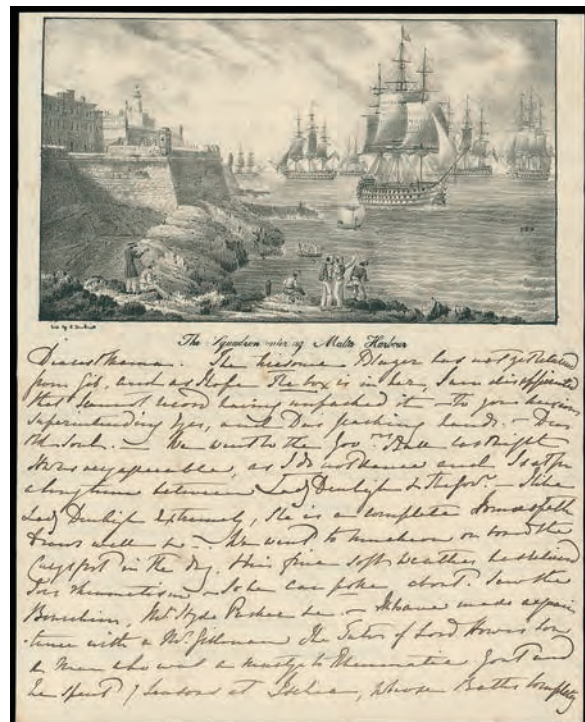 The Squadron entering Malta Harbour
Dearest Mama. The has not yet returned
from Gib, and as I hope the box is in her, I am disappointed
that I cannot record having unpacked it — To your
Superintending Eyes, and Dus hands. — Dear
old Soul. — We went to the Gov.rs Ball last night
it was very agreeable, as I do not dance and I sat for
a long time between Lady Denbigh & the Gov.r — I like
Lady Denbigh extremely, She is a complete
draws well &c — We went to luncheon on board the
in the day. This fine soft weather has relieved
Rheumatism — So he can poke about. Saw the
Mr. Hyde Parker &c. — I have made acquain
-tance with a Mr. The Tutor of Lord Howe's Son
a Man who was a martyr to Rheumatic Gout and
he spent 7 Seasons at Ischia, whose Baths completely